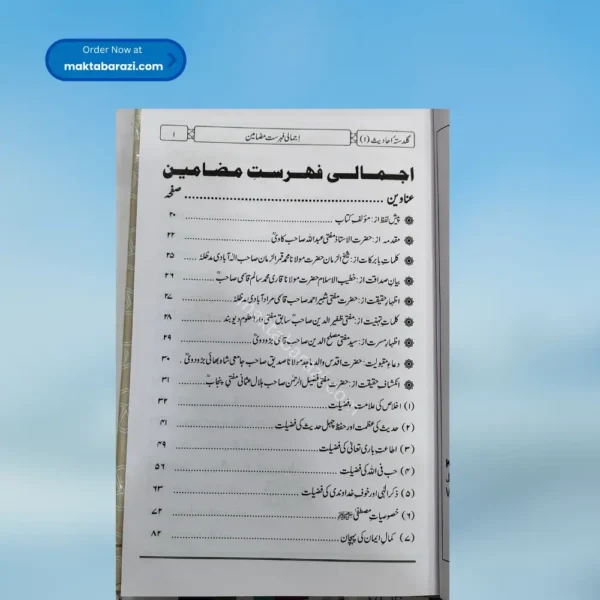 Order Now at
maktabarazi.com
گلدستۂ احادیث (۱) اجمالی فہرست مضامین ۱
اجمالی فہرست مضامین
عناوین ........ صفحہ
پیش لفظ از: مؤلف کتاب ........ ۲۰
مقدمہ از: حضرت الاستاذ مفتی عبداللہ صاحب کاویؒ ........ ۲۲
کلمات بابرکات از: شیخ الزمان حضرت مولانا محمد قمرالزمان صاحب الٰہ آبادی مدظلہٗ ........ ۲۵
بیان صداقت از: خطیب الاسلام حضرت مولانا قاری محمد سالم قاسمی صاحبؒ ........ ۲۶
اظہار حقیقت از: حضرت مفتی شبیر احمد صاحب قاسمی مرادآبادی مدظلہٗ ........ ۲۷
کلمات تہنیت از: مفتی ظفیر الدین صاحبؒ سابق مفتی دارالعلوم دیوبند ........ ۲۸
اظہار مسرت از: سید مفتی مصلح الدین صاحب قاسمی بڑودویؒ ........ ۲۹
دعاءِ مقبولیت: حضرت اقدس والد ماجد مولانا صدیق صاحب جامعی شاہ بھائی بڑودویؒ . ۳۰
انکشاف حقیقت از: حضرت مفتی فضیل الرحمٰن صاحب ہلال عثمانی مفتیِ پنجابؒ ........ ۳۱
(۱) اخلاص کی علامت وفضیلت ........ ۳۲
(۲) حدیث کی عظمت اور حفظ چہل حدیث کی فضیلت ........ ۴۱
(۳) اطاعت باری تعالیٰ کی فضیلت ........ ۴۹
(۴) حب فی اللہ کی فضیلت ........ ۵۶
(۵) ذکر الٰہی اور خوف خداوندی کی فضیلت ........ ۶۳
(۶) خصوصیات مصطفیٰ ﷺ ........ ۷۲
(۷) کمالِ ایمان کی پہچان ........ ۸۲
maktabarazi.com